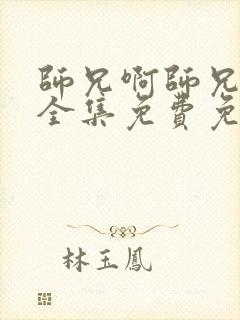 師兄啊師兄
全集免費免
林玉鳳